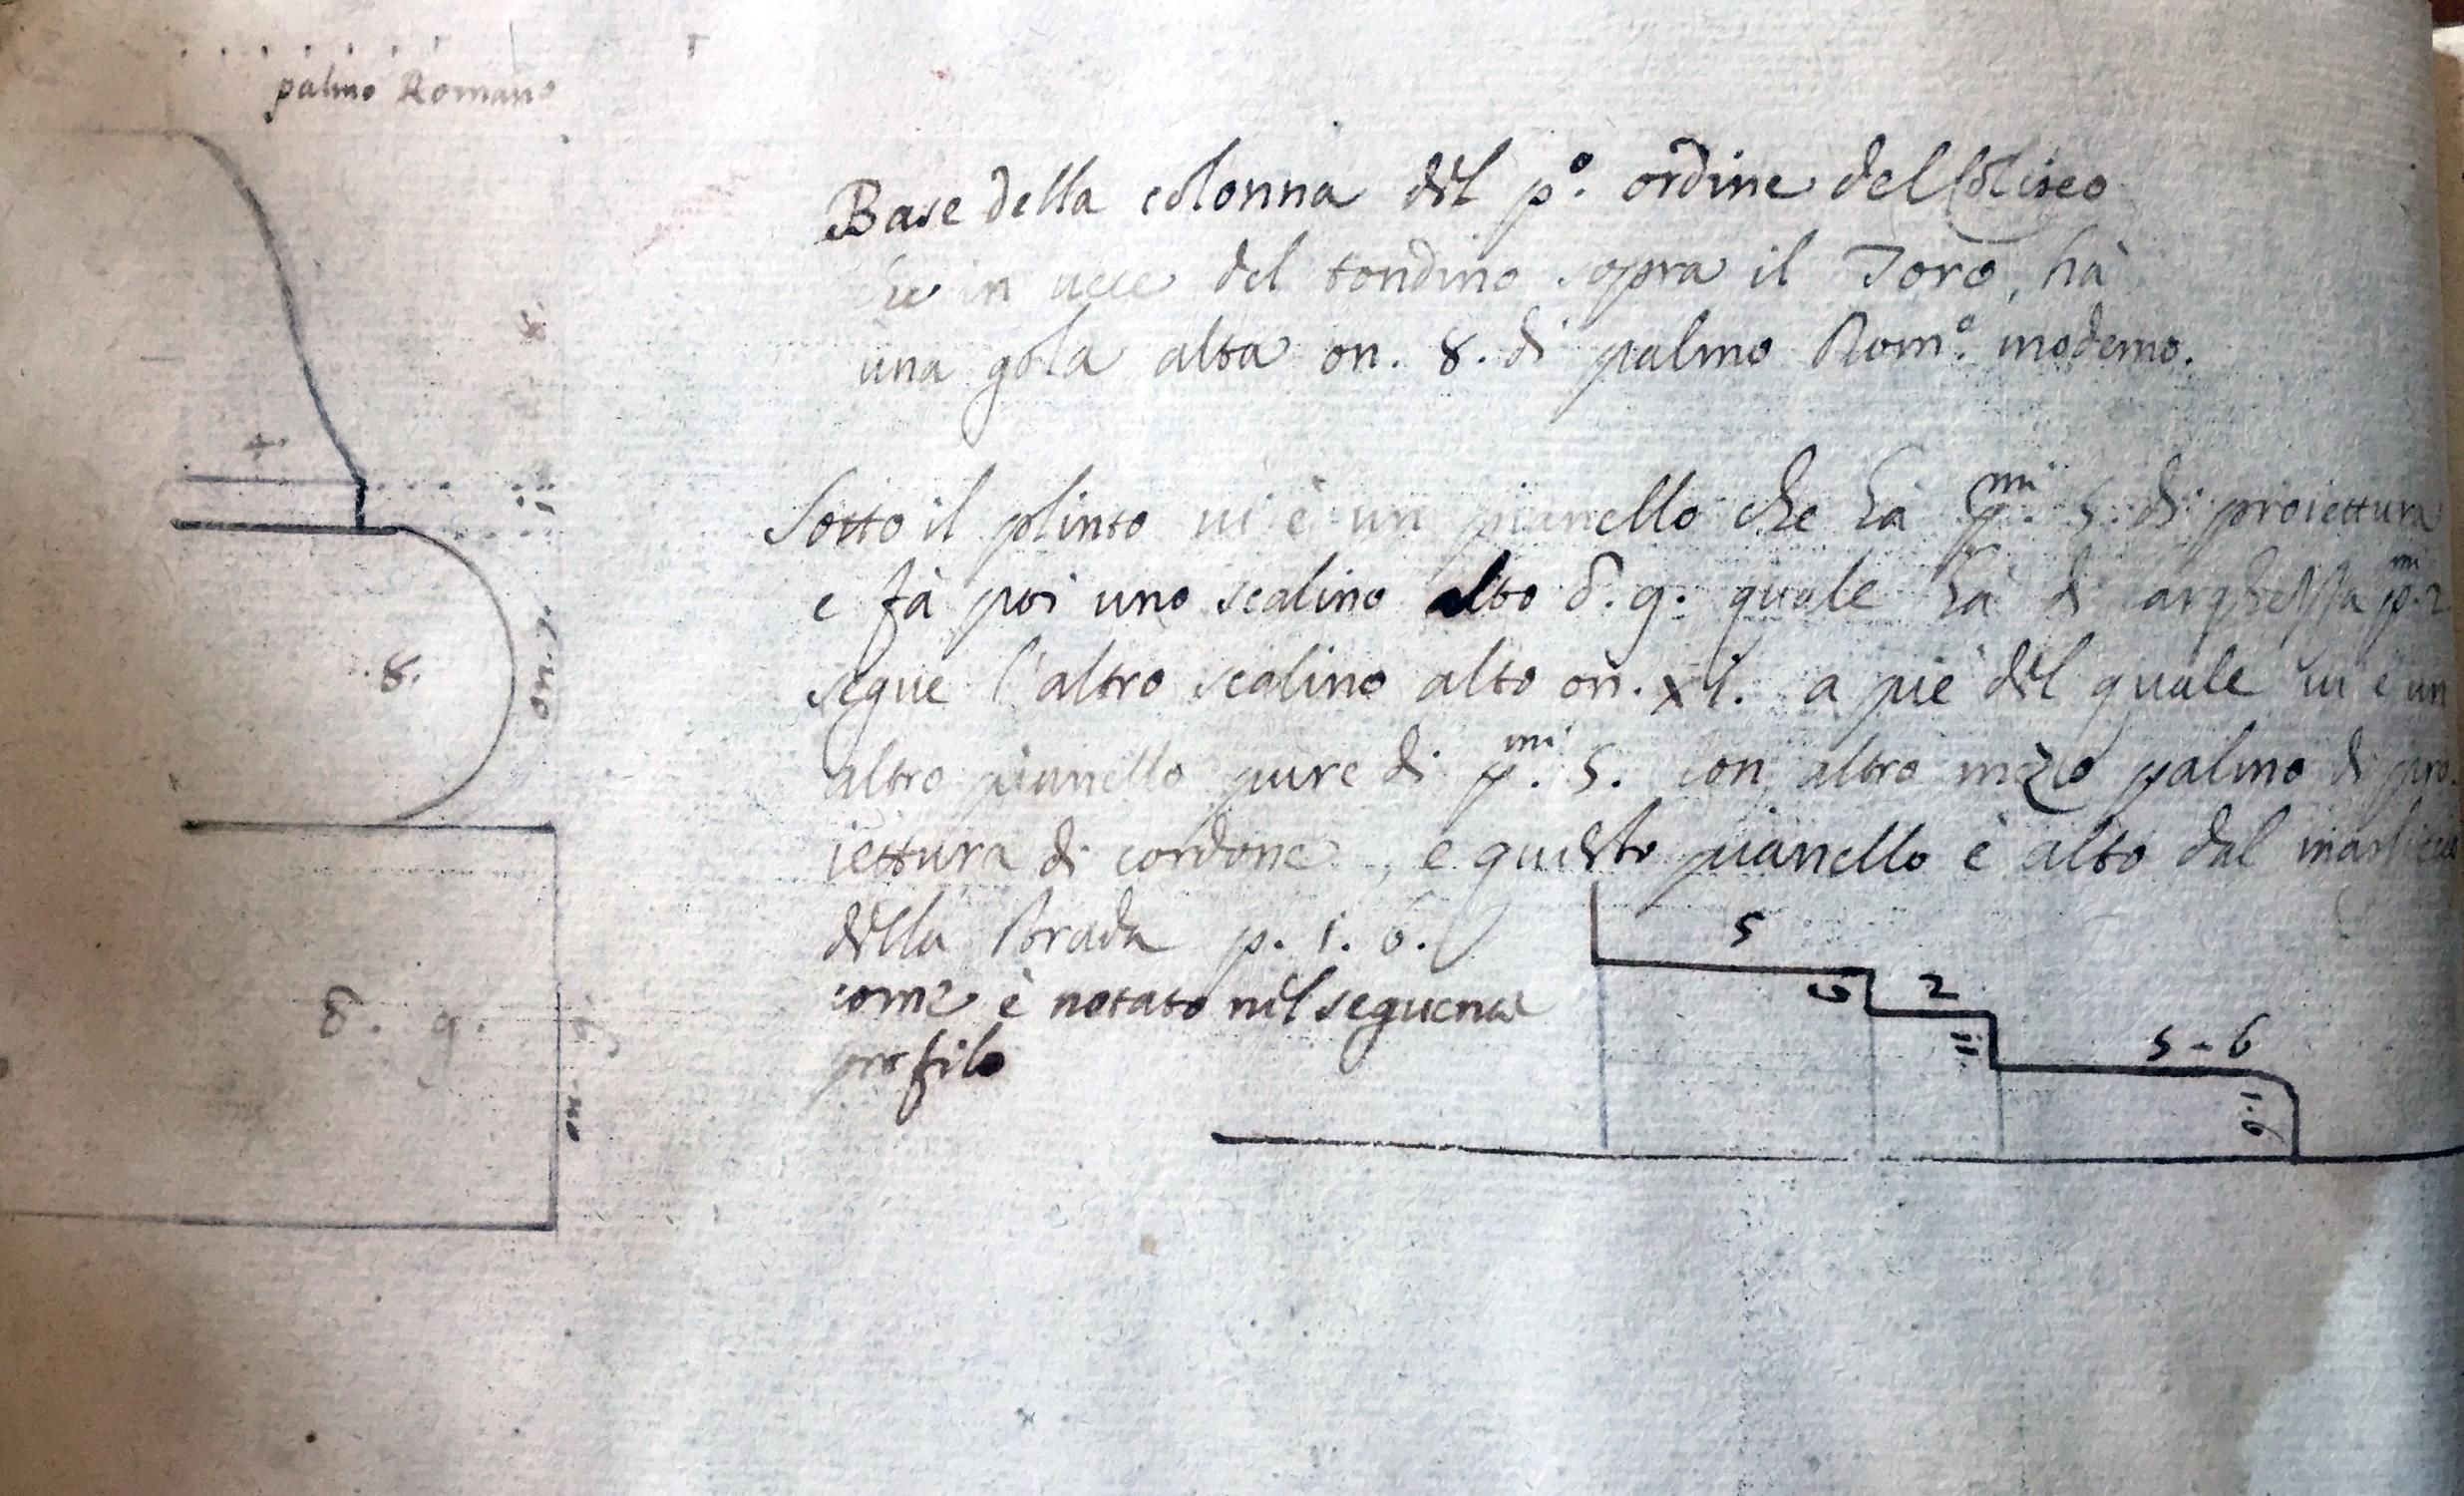 palmo Romano
Base della colonna del p.º ordine del Coliseo
che in uece del tondino sopra il Toro, hà
una gola alta on. 8. di palmo Rom.º moderno.
Sotto il plinto ui è un pianello che hà p.mi 5. di proiettura
e fà poi uno scalino alto δ. 9. quale hà di larghezza p.mi 2
segue l'altro scalino alto on. xi. a piè del quale ui è un
altro pianello pure di p.mi 5. con altro mezo palmo di pro
iettura di cordone, e questo pianello è alto dal
della strada p. 1. 6.
come è notato nel seguente
profilo
8.
on. 7.
δ. 9.
on.
5
9
2
11
5 - 6
1.6